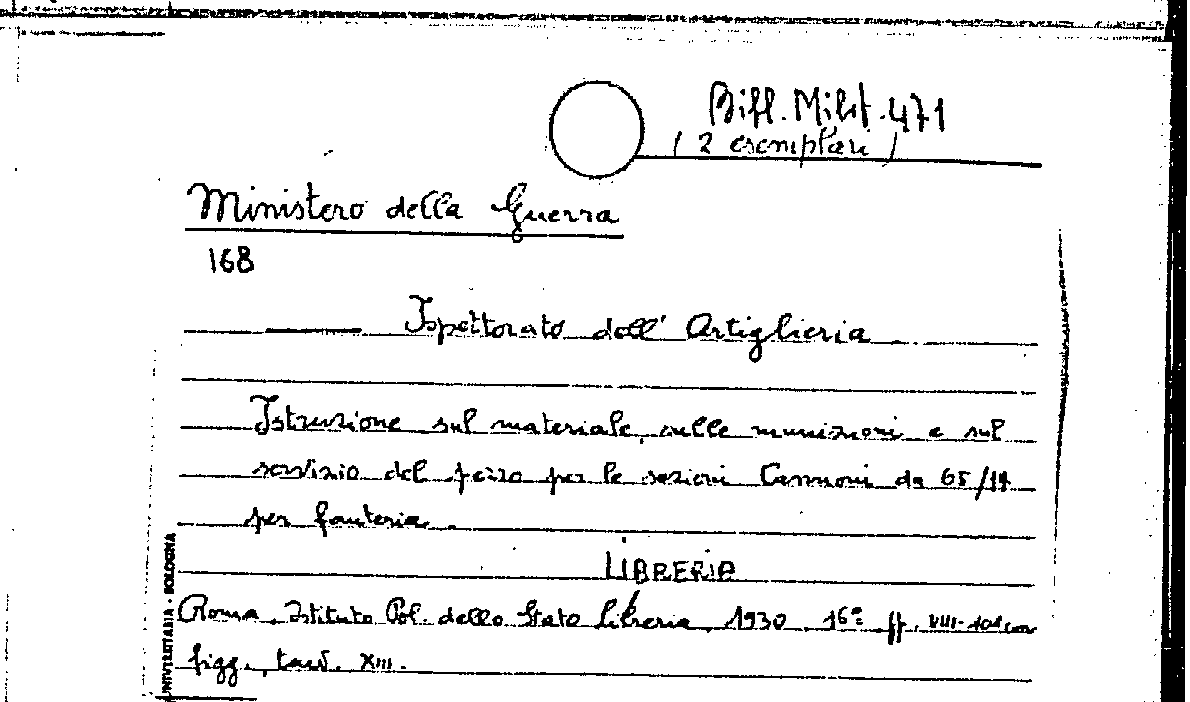 Bibl. Milit. 471
(2 esemplari)
Ministero della Guerra
168
Ispettorato dell' Artiglieria
Istruzione sul materiale, sulle munizioni e sul
servizio del pezzo per le sezioni Cannoni da 65/17
per fanteria.
LIBRERIA
Roma, Istituto Pol. dello Stato Libreria, 1930. 16° pp. VIII-101 con
figg., tavv. XIII.
UNIVERSITARIA - BOLOGNA